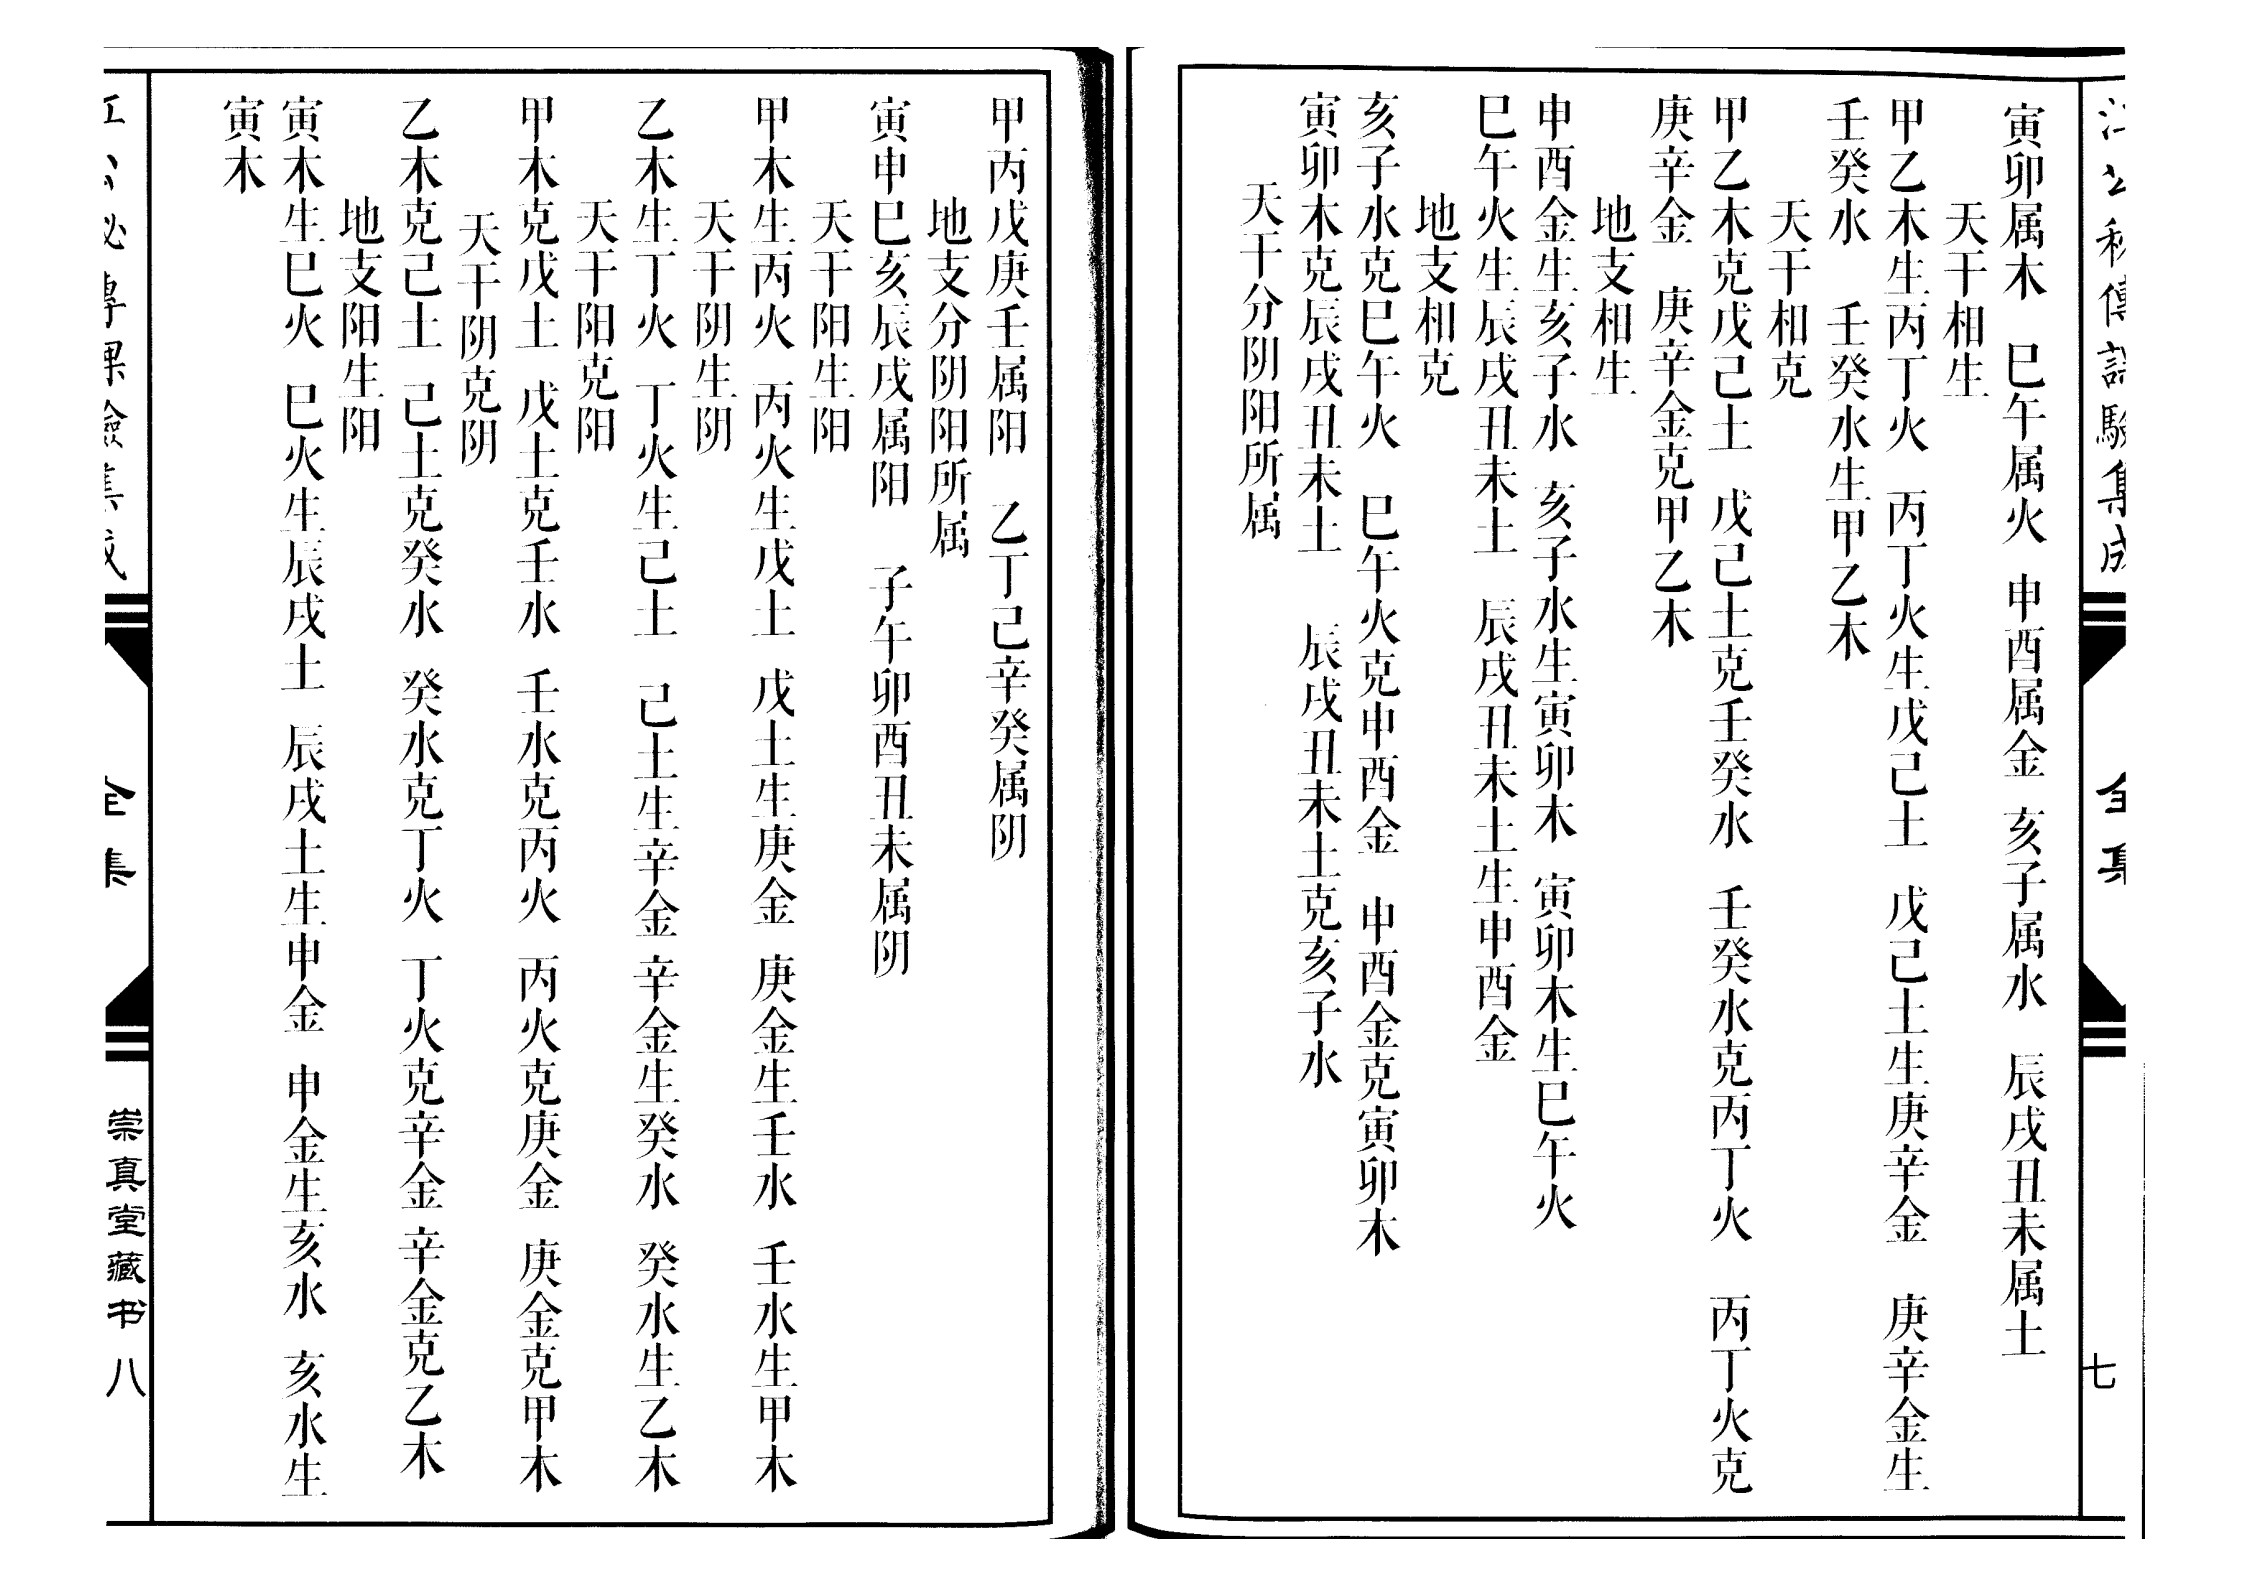 寅卯属木 巳午属火 申酉属金 亥子属水 辰戌丑未属土
天干相生
甲乙木生丙丁火 丙丁火生戊己土 戊己土生庚辛金 庚辛金生
壬癸水 壬癸水生甲乙木
天干相克
甲乙木克戊己土 戊己土克壬癸水 壬癸水克丙丁火 丙丁火克
庚辛金 庚辛金克甲乙木
地支相生
申酉金生亥子水 亥子水生寅卯木 寅卯木生巳午火
巳午火生辰戌丑未土 辰戌丑未土生申酉金
地支相克
亥子水克巳午火 巳午火克申酉金 申酉金克寅卯木
寅卯木克辰戌丑未土 辰戌丑未土克亥子水
天干分阴阳所属
七
甲丙戊庚壬属阳 乙丁己辛癸属阴
地支分阴阳所属
寅申巳亥辰戌属阳 子午卯酉丑未属阴
天干阳生阳
甲木生丙火 丙火生戊土 戊土生庚金 庚金生壬水 壬水生甲木
天干阴生阴
乙木生丁火 丁火生己土 己土生辛金 辛金生癸水 癸水生乙木
天干阳克阳
甲木克戊土 戊土克壬水 壬水克丙火 丙火克庚金 庚金克甲木
天干阴克阴
乙木克己土 己土克癸水 癸水克丁火 丁火克辛金 辛金克乙木
地支阳生阳
寅木生巳火 巳火生辰戌土 辰戌土生申金 申金生亥水 亥水生
寅木
全集
崇真堂藏书 八